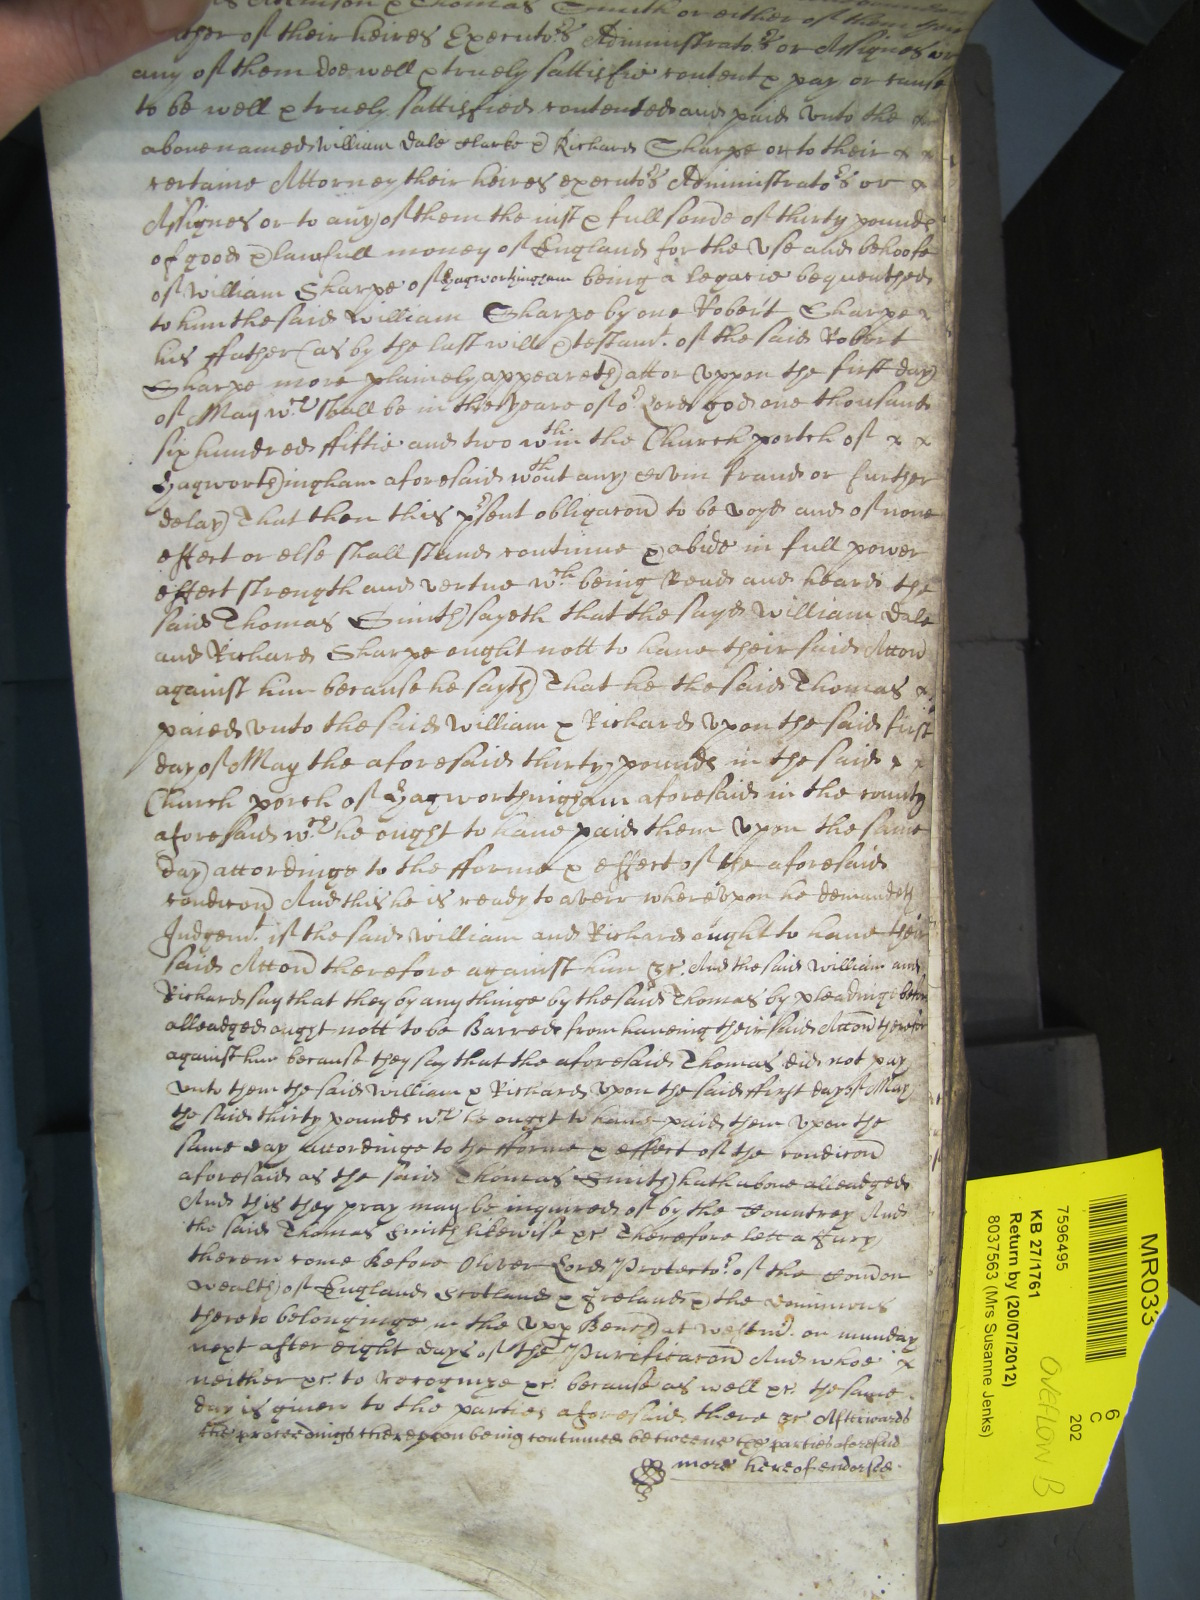 Thomas Smith or either of them
of their heires Executors Administrators or Assignes or
any of them doe well & truely sattisfie content & pay or cause
to be well & truely sattisfied contented and paid unto the x
abovenamed William Dale Clarke & Richard Sharpe or to their x x
certaine Attorney their heires executors Administrators or x
Assignes or to any of them the just & full some of thirty pounds
of good & lawfull money of England for the use and behoofe
of William Sharpe of Hagworthingham being a legacie bequeathed
to him the said William Sharpe by one Robert Sharpe x
his ffather (as by the last will & testamt. of the said Robert
Sharpe more plainely appeareth) att or uppon the first day
of May wch shall be in the yeare of or Lord god one thousand
six hundred fiftie and two wthin the Church portch of x x
Hagworthingham aforesaid wthout any covin fraud or further
delay That then this prsent obligacon to be voyd and of none
effect or else shall stand continue & abide in full power
effect strength and vertue wch being Read and heard the
said Thomas Smith sayeth that the sayd William Dale
and Richard Sharpe ought nott to have their said Accon
against him because he sayth That he the said Thomas x
paied unto the said William & Richard upon the said first
day of May the aforesaid thirty pounds in the said x x
Church porch of Hagworthingham aforesaid in the county
aforesaid wch he ought to have paid them upon the same
day accordinge to the fforme & effect of the aforesaid
condicon And this he is ready to averr whereupon he demandeth
Judgemt. if the said William and Richard ought to have their
said Accon therefore against him &c. And the said William and
Richard say that they by any thinge by the said Thomas by pleadinge before
alleadged ought nott to be Barred from haveing their said Accon therefore
against him because they say that the aforesaid Thomas did not pay
unto them the said William & Richard upon the said ffirst day of May
the said thirty pounds wch he ought to have paid them upon the
same day accordinge to the fforme & effect of the condicon
aforesaid as the said Thomas Smith hath above alleadged
And this they pray may be inquired of by the Countrey And
the said Thomas Smith likewise &c Therefore lett a Jury
therein come Before Oliver Lord Protector of the Common
wealth of England Scotland & Ireland & the dominions
thereto belonginge in the upp Bench at Westmr. on munday
next after eight days of the Purificacon And whoe x
neither &c. to recognize &c. because as well &c. the same
day is given to the parties aforesaid there &c Afterwards
the proceedings thereupon being continued betweene the parties aforesaid
more hereof endorsed.
MR033
6
C
202
7596495
KB 27/1761
Return by (20/07/2012)
8037563 (Mrs Susanne Jenks)
OVEFLOW B